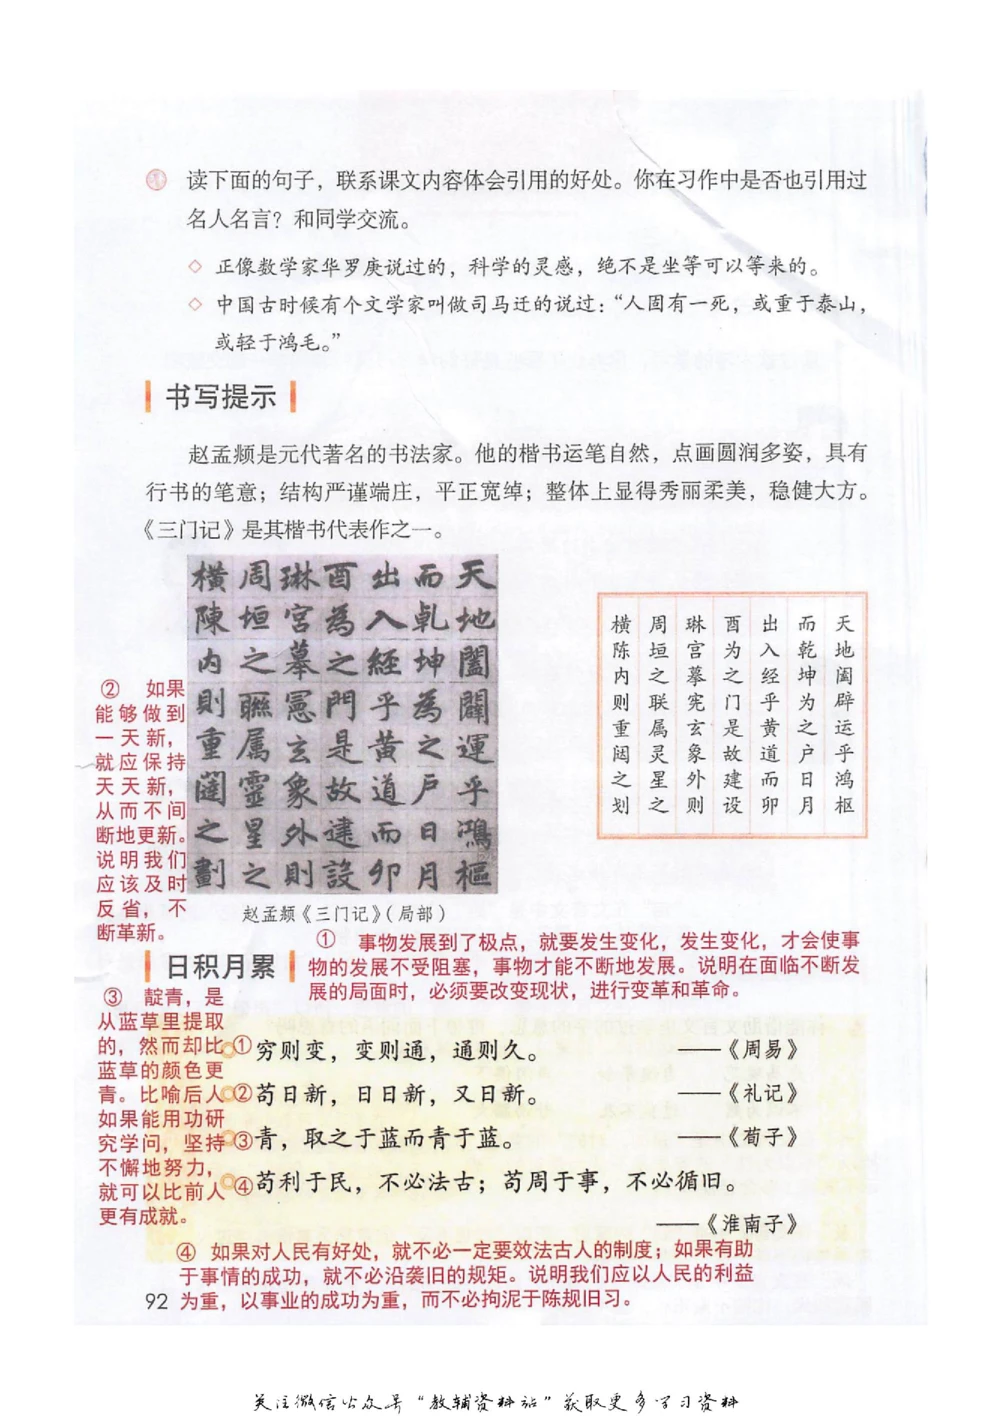 读下面的句子，联系课文内容体会引用的好处。你在习作中是否也引用过
名人名言？和同学交流。
◇ 正像数学家华罗庚说过的，科学的灵感，绝不是坐等可以等来的。
◇ 中国古时候有个文学家叫做司马迁的说过：“人固有一死，或重于泰山，
或轻于鸿毛。”
书写提示
赵孟𫖯是元代著名的书法家。他的楷书运笔自然，点画圆润多姿，具有
行书的笔意；结构严谨端庄，平正宽绰；整体上显得秀丽柔美，稳健大方。
《三门记》是其楷书代表作之一。
天地闔闢運乎鴻樞
而乹坤為之戶日月
出入經乎黄道而卯
酉為之門是故建設
琳宮摹憲玄象外則
周垣之聮属靈星之
橫陳内則重闥之劃
天地阖辟运乎鸿枢
而乾坤为之户日月
出入经乎黄道而卯
酉为之门是故建设
琳宫摹宪玄象外则
周垣之联属灵星之
横陈内则重闼之划
赵孟𫖯《三门记》（局部）
② 如果
能够做到
一天新，
就应保持
天天新，
从而不间
断地更新。
说明我们
应该及时
反省，不
断革新。
日积月累
① 事物发展到了极点，就要发生变化，发生变化，才会使事
物的发展不受阻塞，事物才能不断地发展。说明在面临不断发
展的局面时，必须要改变现状，进行变革和革命。
③ 靛青，是
从蓝草里提取
的，然而却比
蓝草的颜色更
青。比喻后人
如果能用功研
究学问，坚持
不懈地努力，
就可以比前人
更有成就。
①穷则变，变则通，通则久。 ——《周易》
②苟日新，日日新，又日新。 ——《礼记》
③青，取之于蓝而青于蓝。 ——《荀子》
④苟利于民，不必法古；苟周于事，不必循旧。
——《淮南子》
④ 如果对人民有好处，就不必一定要效法古人的制度；如果有助
于事情的成功，就不必沿袭旧的规矩。说明我们应以人民的利益
为重，以事业的成功为重，而不必拘泥于陈规旧习。
92
关注微信公众号“教辅资料站”获取更多学习资料